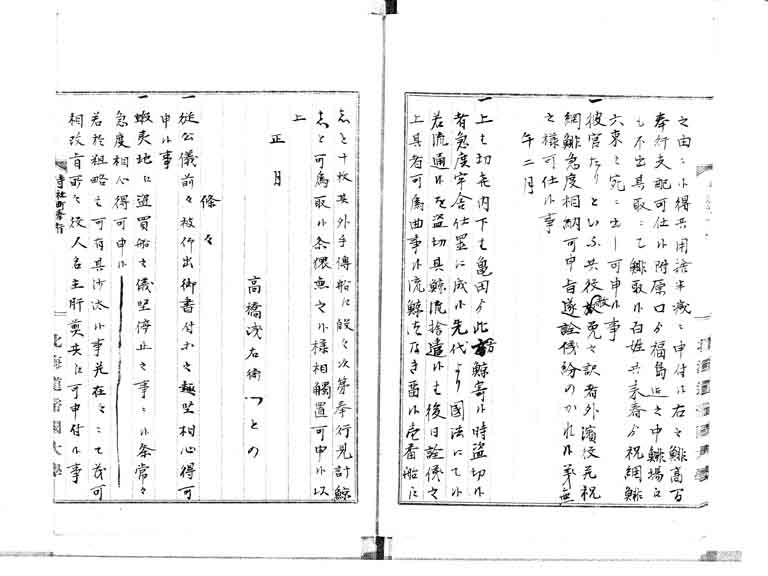 之由ニ候得共用捨半減ニ申付候右之鯡高百
奉行支配可仕候附原口ゟ福島迄之中鯡場江
も不出其取ニて鯡取候百姓共来春ゟ祝網鯡
六束之宛ニ出し可申候事
一彼宮たりといふ共役 免之訳者外濱役先祝
網鯡急度相納可申旨遂詮儀紛のかれ候事無
之様可仕候事
午二月
一上も切 内下も亀田ゟ此方鯨寄候時盗切候
者急度牢舎仕置ニ成候先代より國法にて候
若流通候を盗切其鯨流捨遣候も後日詮儀之
上其者可為曲事候流鯨 なき 候壱番船江
志と十枚其外手傳船江段々次第奉行見計鯨
志と可為取候条 無之候様相觸置可申候以
上
正月
高橋浅右衛つとの
條々
一従公儀前々被仰出御書付等之趣堅相心得可
申候事
一蝦夷地江 買船之儀堅停止之事ニ候条常々
急度相心得可申候
若於粗略之可有其沙汰候事 在々ニても可
相改旨所々役人名主肝煎共江可申付候事
寺社町奉行
北海道帝國大學